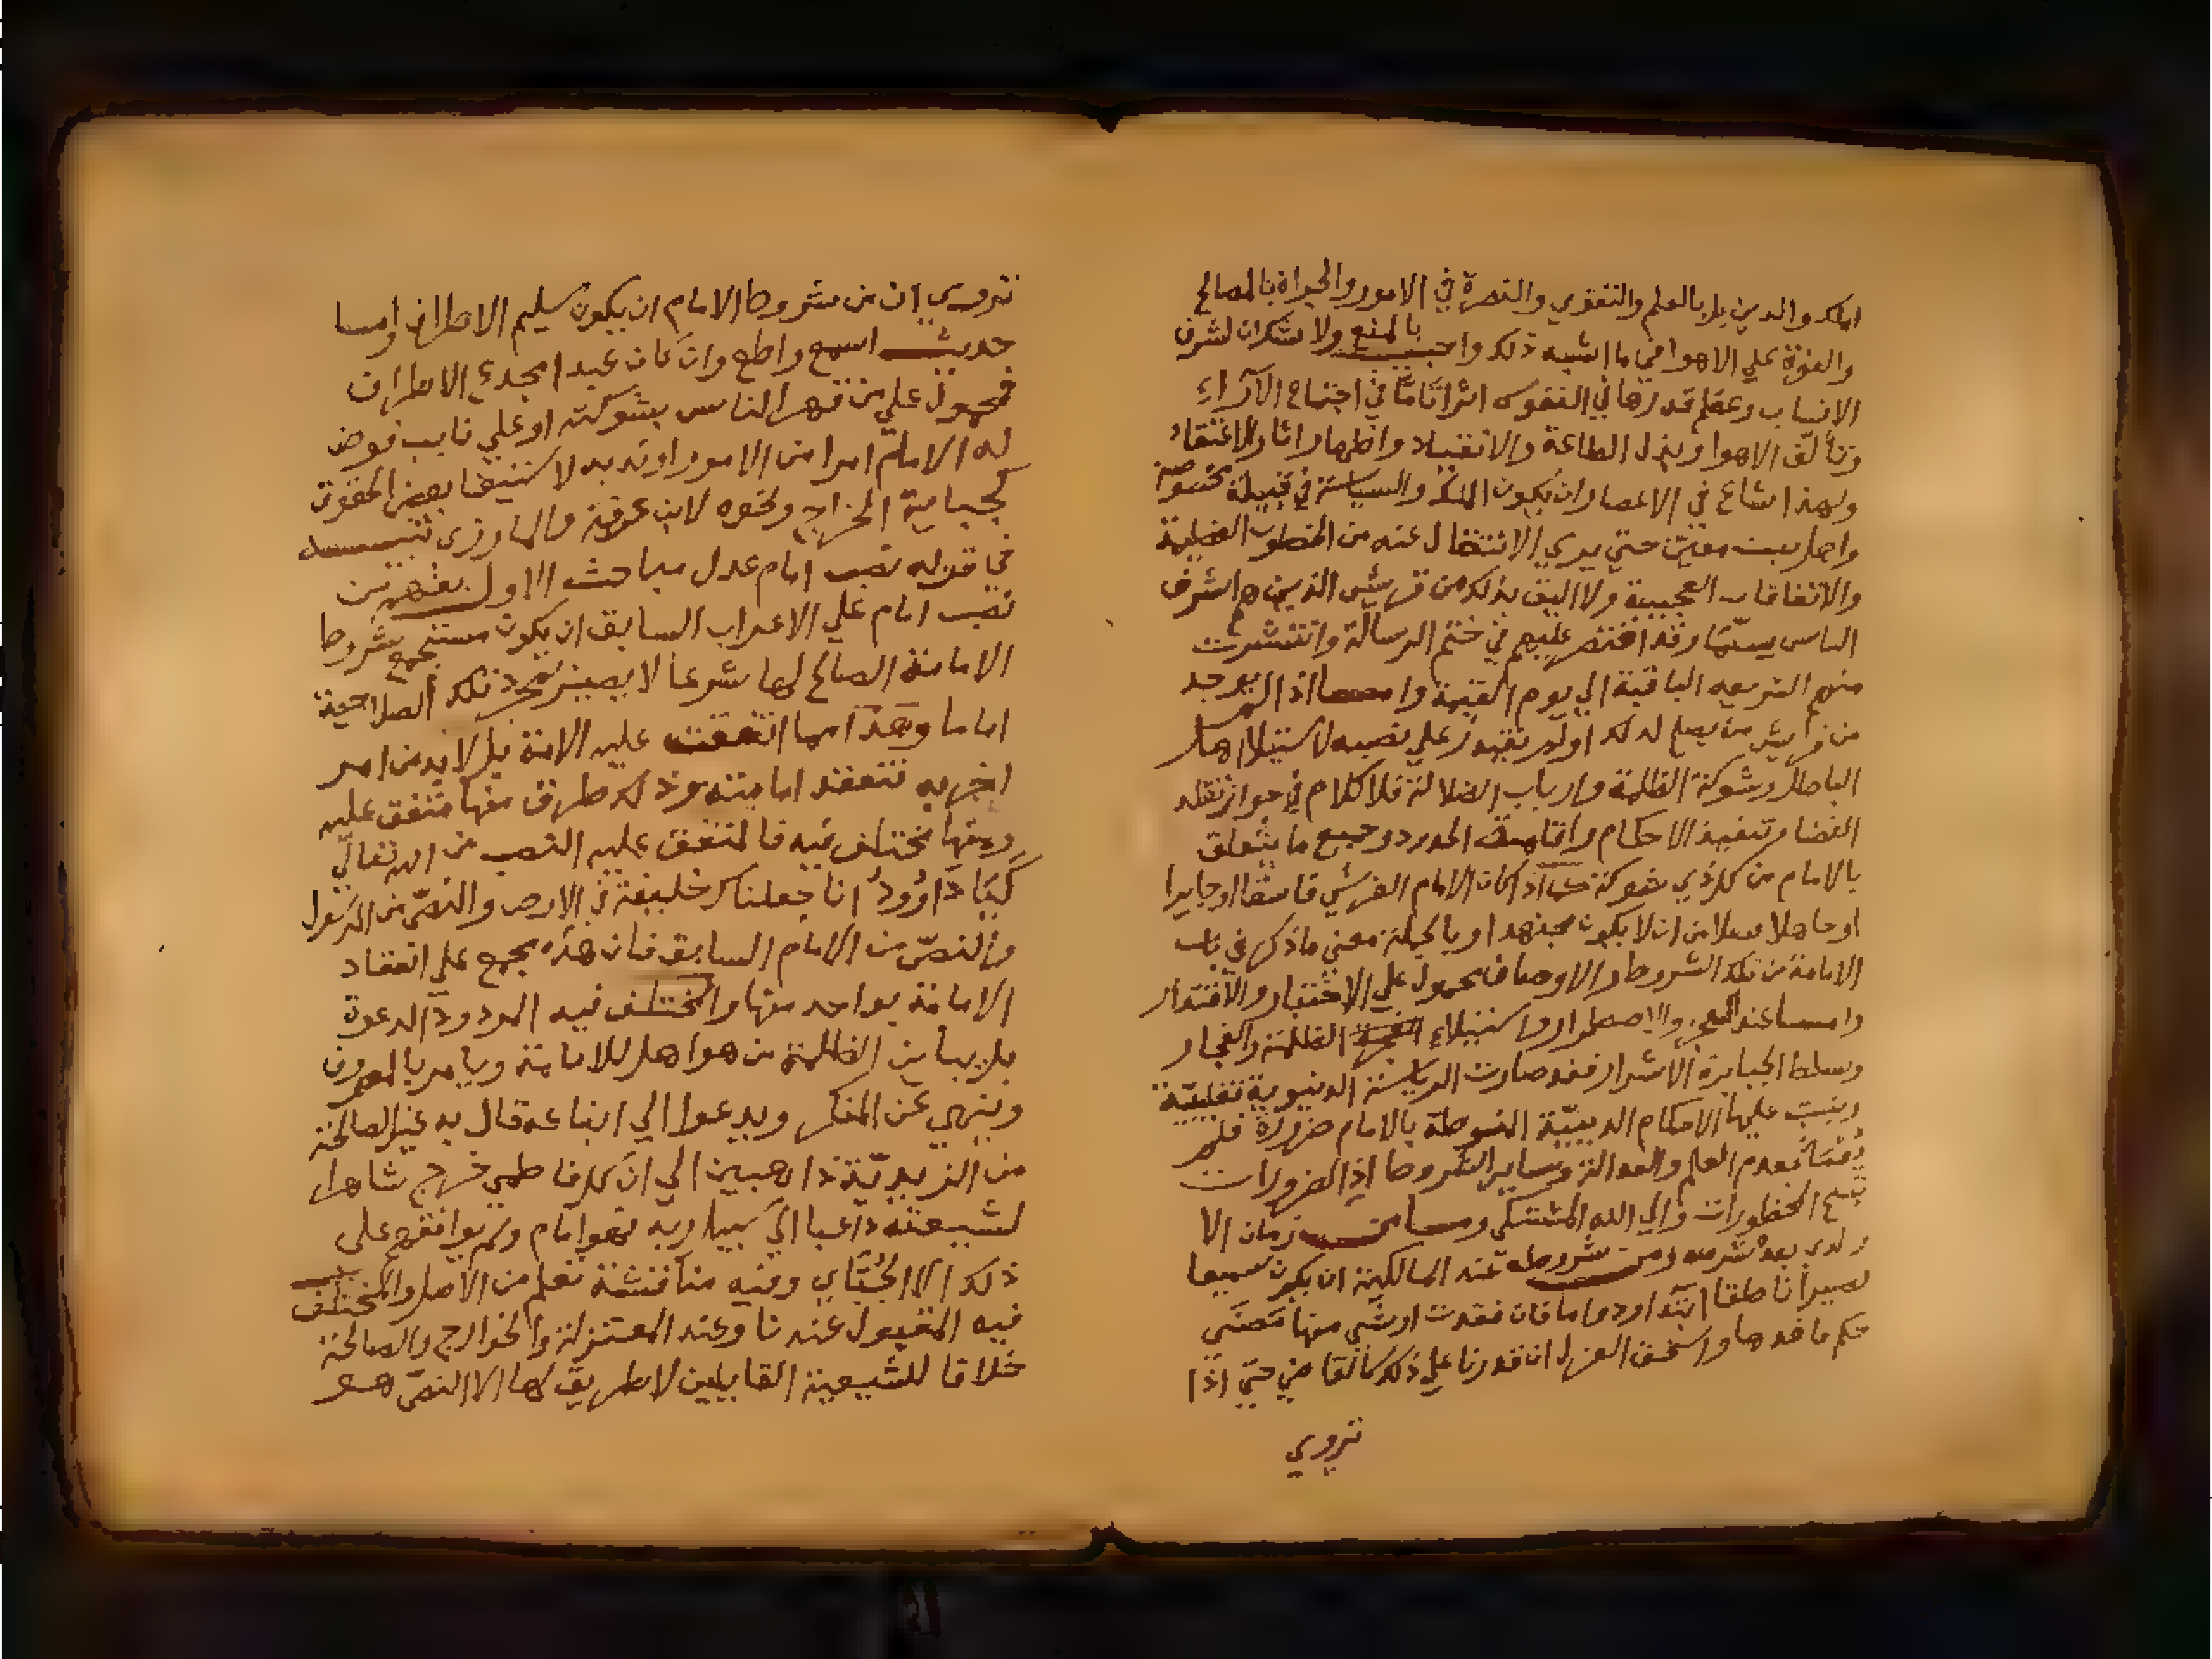 الملك والدين بل بالعلم والتقوي والبصرة في الامور والخبراة بالمصالح
والقوة علي الاهوا في ما اشبه ذلك واجيب بالمنع ولا نشكران لشرف
الانساب وعظم قدرها في النفوس اثرا تامًّا في اجتماع الآراءِ
وتألّف الاهوا وبذل الطاعة والانقياد واظهار اثار الاعتقاد
ولهذا شاع في الاعصار ان يكون الملك والسياسة في قبيلة مخصوصة
واهل بيت معيّن حتي يري الانتقال عنه من الخطوب العظيمة
والاتفاقات العجيبة ولا اليق بذلك من قريش الذين هم اشرف
الناس سيّما وقد اقتصر عليهم في ختم الرسالة وانتشرت
منهم الشريعه الباقية الي يوم القيمة واما اذا لم يوجد
من قريش من يصلح لذلك اولم يقتدر علي نصبه لاستيلاء اهل
الباطل وشوكة الظلمة وارباب الضلالة فلا كلام في جواز تقلد
القضا وتنفيذ الاحكام واقامة الحدود وجميع ما يتعلق
بالامام من كل ذي شوكة كما اذا كان الامام القرشي فاسقا اوجايرا
اوجاهلا فضلا من ان لا يكون مجتهدا وبالجملة معني ماذكر في باب
الامامة من تلك الشروط والاوصاف محمول علي الاختيار والاقتدار
واما عند العجز والاضطرار واستيلاءِ الظلمة والفجار
وسلط الجبابرة الاشرار فقد صارت الرياسة الدنيوية تغلبيّة
وبنيت عليها الاحكام الدينيّة المنوطة بالامام ضرورة فلم
بعدم العلم والعدالة وساير الشروط اذ الضرورات
تبيح المحظورات والي الله المشتكي زمان الا
ولدي بعد ومن شروطه عند المالكية ان يكون سميعا
بصيرا ناطقا ابتداودواما فان فقدت اوشي منها مضي
حكم ما قدها واستحق العزل ان قدرنا علي ذلك كالقاضي حتي اذا
نزوي
نزوي ان من شروط الامام ان يكون سليم الاطراف واما
حديث اسمع واطع وان كان عبدا مجدع الاطراف
فمحمول علي من قهر الناس بشوكته او علي نايب فوض
له الامام امرا من الامور اوند به لاستيفا بعض الحقوق
كجباية الخراج ونحوه لابن عرفة والمازري تنبيه
في قوله نصب امام عدل مباحث الاول يفهم من
نصب امام علي الاعراب السابق ان يكون مستجمع شروط
الامامة الصالح لها شرعا لا يصير بمجرد تلك الصلاحية
اماما وهذا مما اتفقت عليه الامة بل لابد من امر
اخر به تنعقد امامته وذلك طرق منها متفق عليه
ومنها مختلف فيه فالمتفق عليه النصب من الله تعالي
كَيَا دَاوُودُ انا جعلناك خليفة في الارض والنصّ من الرسول
والنصّ من الامام السابق فان هذه مجمع علي انعقاد
الامامة بواحد منها والمختلف فيه المردود الدعوة
بل يباين الظلمة من هو اهل للامامة ويامر بالمعروف
وينهي عن المنكر ويدعوا الي اتباعه قال به غير الصالحة
من الزيديّة ذاهبين الي ان كل فاطمي خرج شاهرا
لشيعته داعيا الي سبيل ربه فهو امام ولم يوافقهم علي
ذلك الا الجُبّاي وفيه مناقشة تعلم من الاصل والمختلف
فيه المقبول عندنا وعند المعتزلة والخوارج والصالحة
خلافا للشيعية القايلين لا طريق لها الا النصّ هو